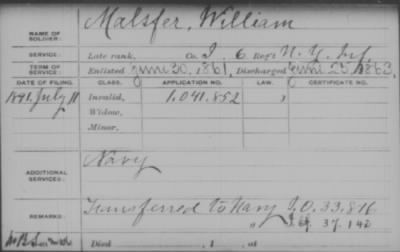 NAME OF SOLDIER: Malsfer, William
SERVICE: Late rank, Co. I, 6 Reg't N.Y. Inf.
TERM OF SERVICE: Enlisted June 30, 1861, Discharged June 25, 1863.
DATE OF FILING. CLASS. APPLICATION NO. LAW. CERTIFICATE NO.
1891, July 11 Invalid, 1.041.852
Widow,
Minor,
ADDITIONAL SERVICES: Navy
REMARKS: Transferred to Navy I.O. 33.816
" 37.142
Died , 1 , at